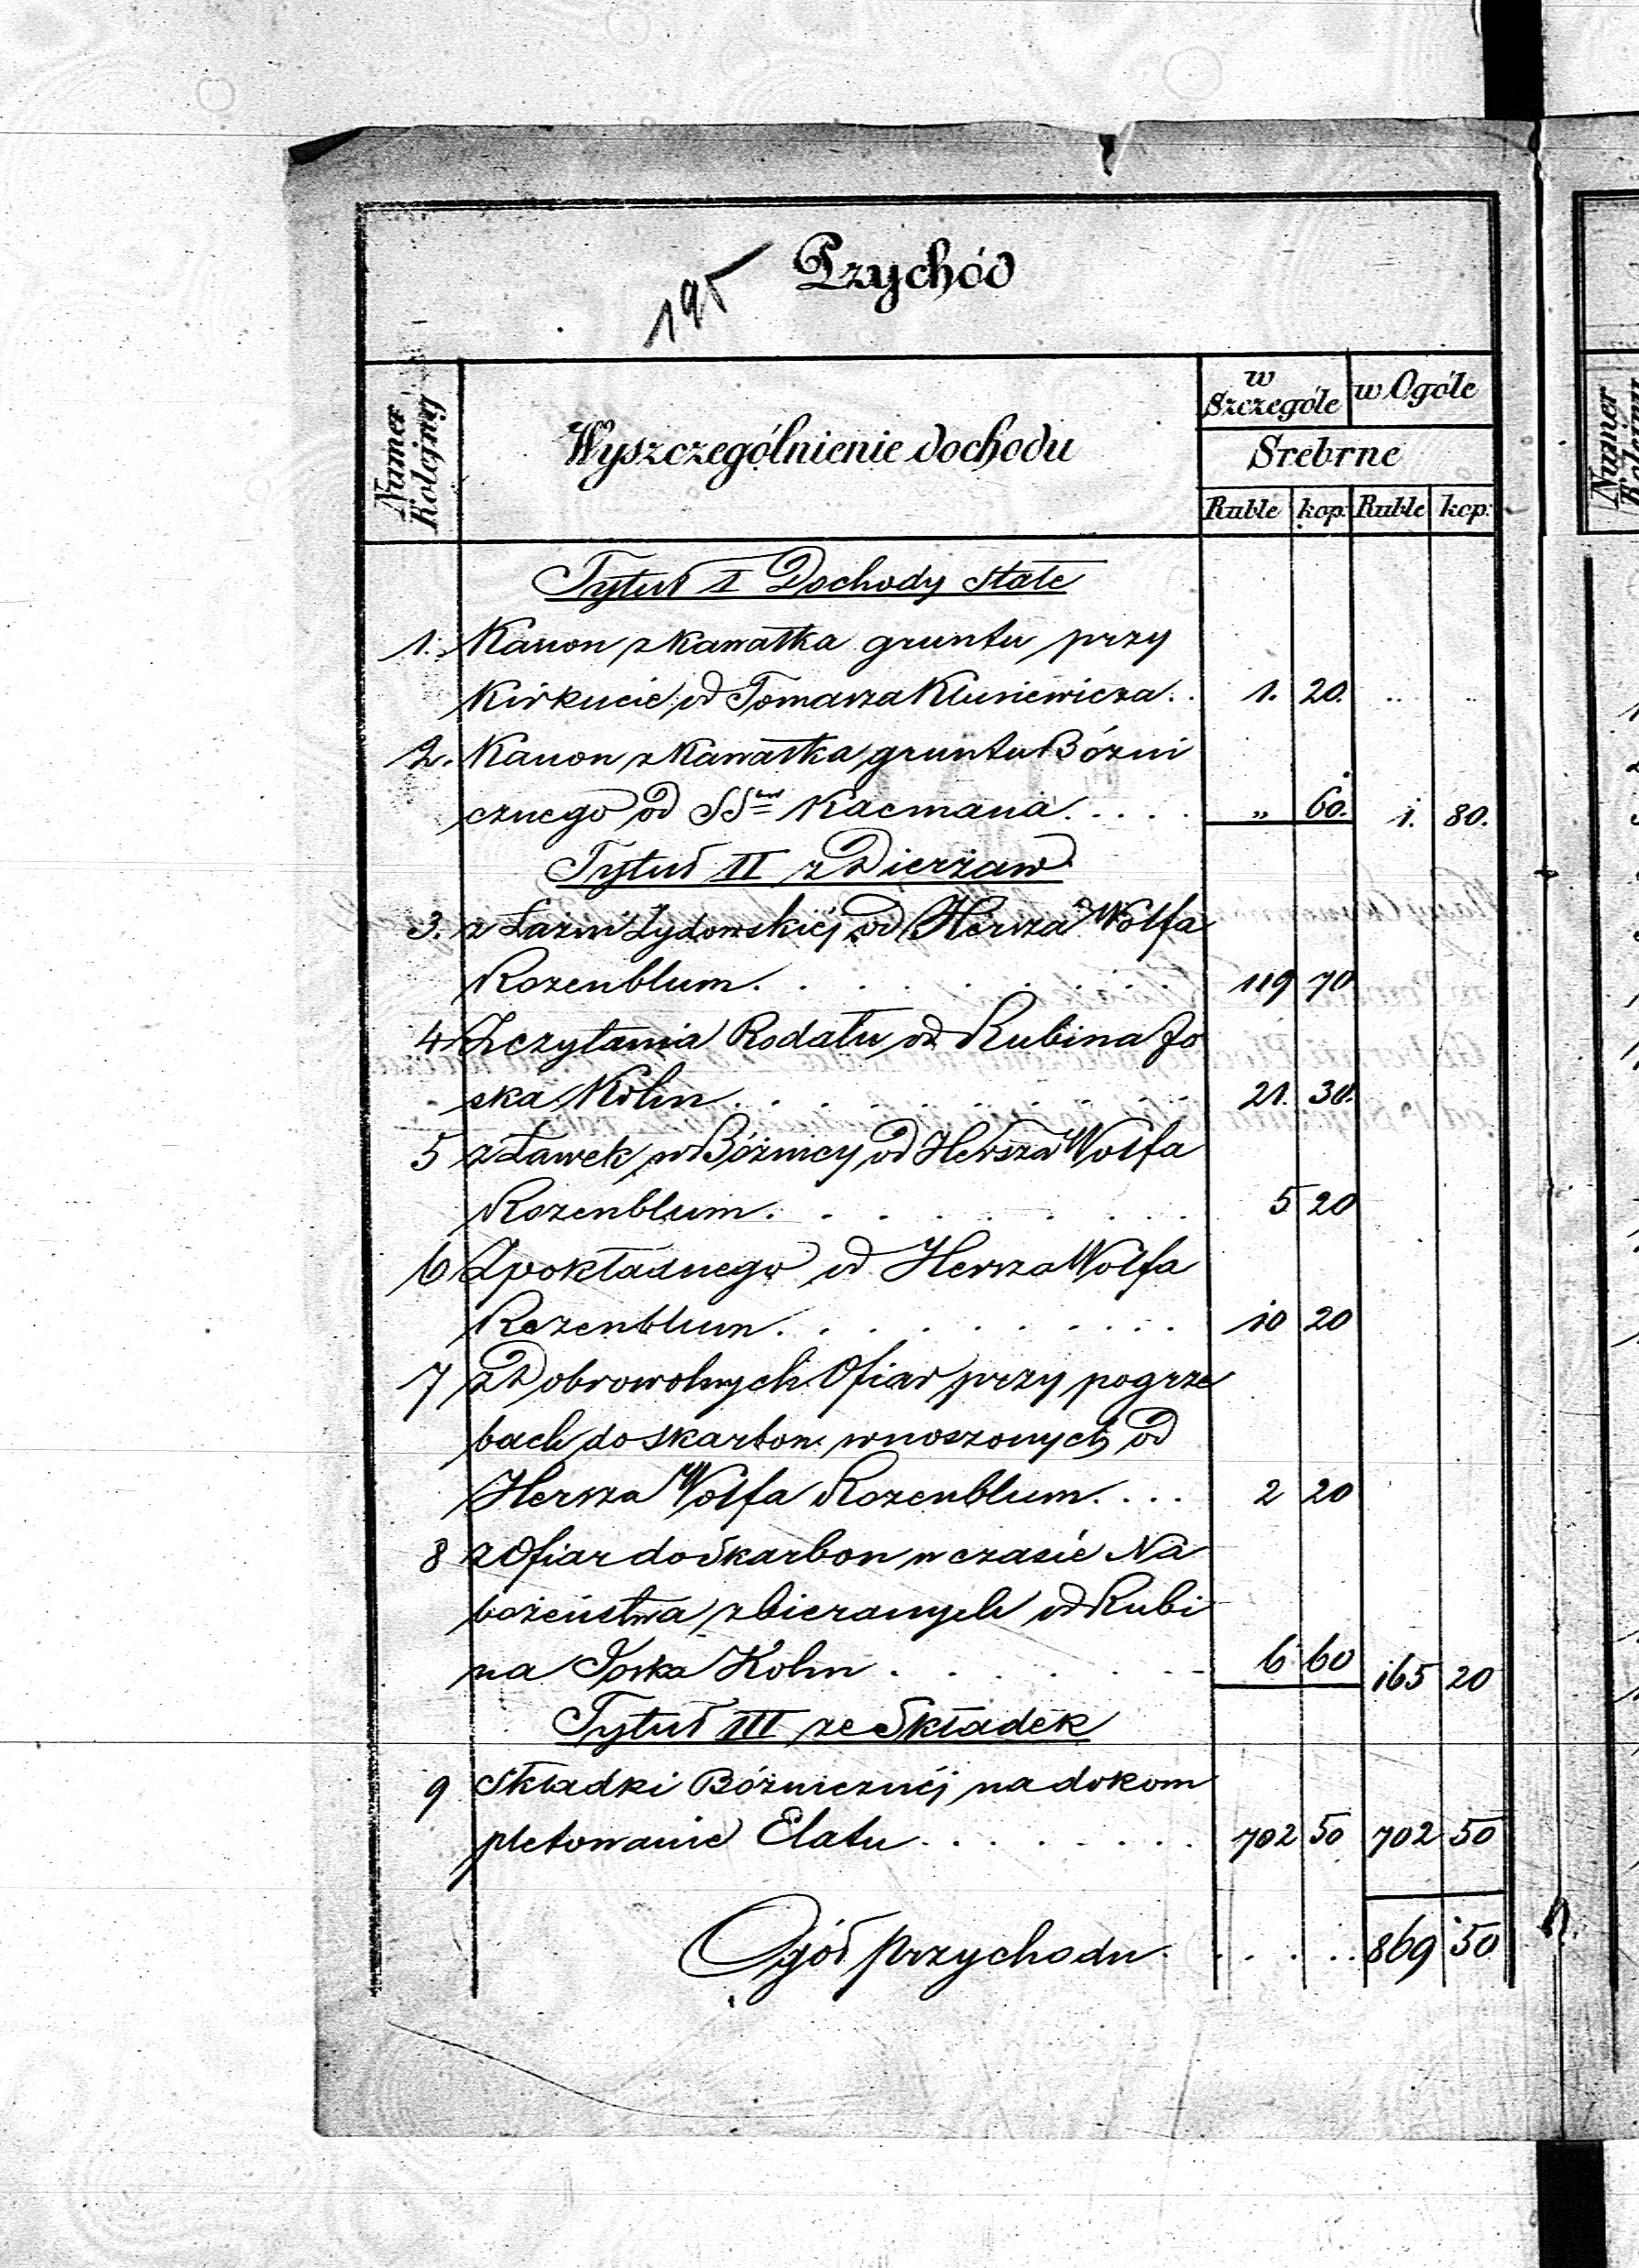 195
Przychód
Numer Kolejny
Wyszczególnienie dochodu
w Szczególe
w Ogóle
Srebrne
Ruble kop: Ruble kop:
Tytuł I Dochody Stałe
1. Kanon z kawałka gruntu przy
Kirkucie od Tomasza Kluniewicza . . 1. 20. .. ..
2. Kanon z kawałka gruntu Bóżni
cznego od SS Kacmana . . . . . „ 60. 1. 80.
Tytuł II z Dzierżaw
3. z Łaźni Żydowskiéj od Hersza Wolfa
Rozenblum . . . . . . . . 119 70
4 Z czytania Rodału od Rubina Jo
ska Kohn . . . . . . . . . 21. 30.
5 z Ławek w Bóżnicy od Hersza Wolfa
Rozenblum . . . . . . . . 5 20
6 Z pokładnego od Hersza Wolfa
Rozenblum . . . . . . . . 10 20
7 z Dobrowolnych Ofiar przy pogrze
bach do skarbon wnoszonych od
Hersza Wolfa Rozenblum . . . . 2 20
8 z Ofiar do Skarbon w czasie Na
bożeństwa zbieranych od Rubi
na Joska Kohn . . . . . . 6 60 165 20
Tytuł III ze Składek
9 Składki Bóżnicznéj na dokom
pletowanie Etatu . . . . . . . . 702 50 702 50
Ogół przychodu . . . . . 869 50
Numer